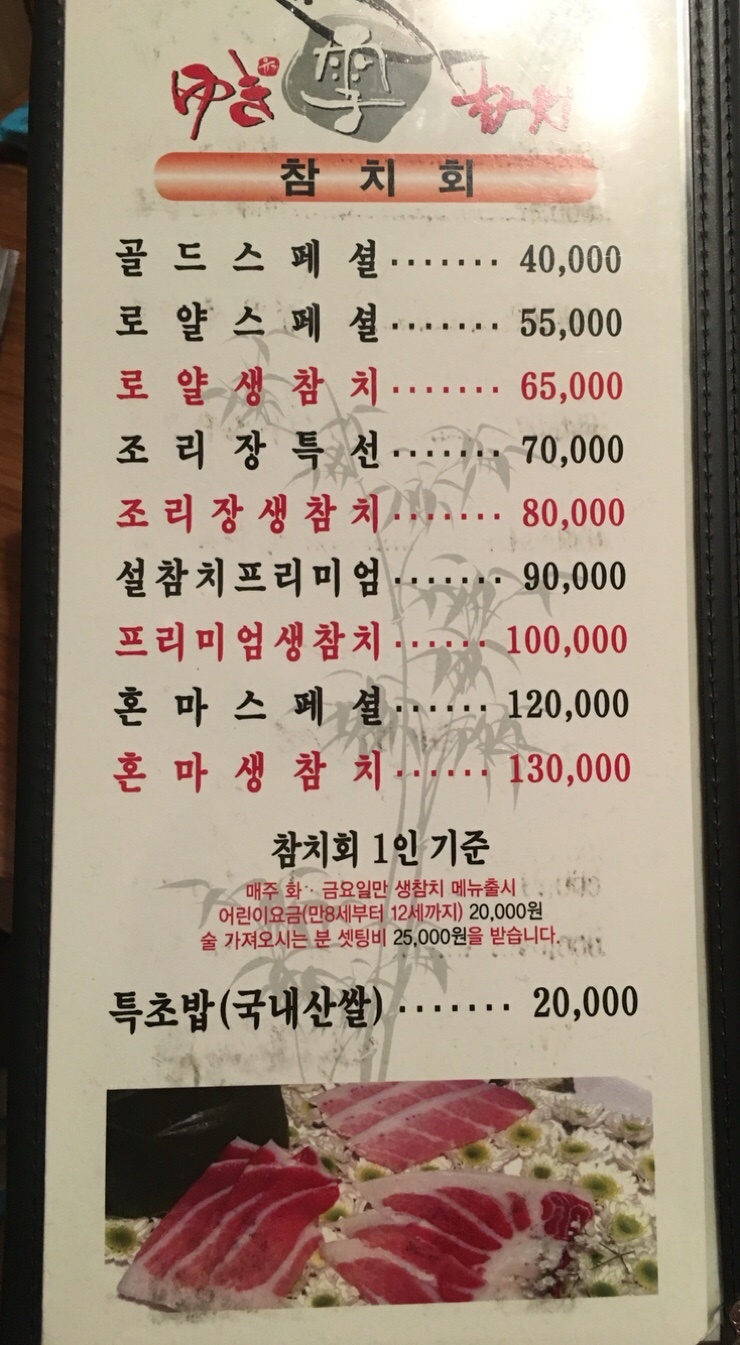 ゆき 雪 참치
참치회
골드스페셜······· 40,000
로얄스페셜······· 55,000
로얄생참치······· 65,000
조리장특선······· 70,000
조리장생참치······· 80,000
설참치프리미엄······· 90,000
프리미엄생참치······ 100,000
혼마스페셜······ 120,000
혼마생참치······ 130,000
참치회 1인 기준
매주 화· 금요일만 생참치 메뉴출시
어린이요금(만8세부터 12세까지) 20,000원
술 가져오시는 분 셋팅비 25,000원을 받습니다.
특초밥(국내산쌀)······· 20,000